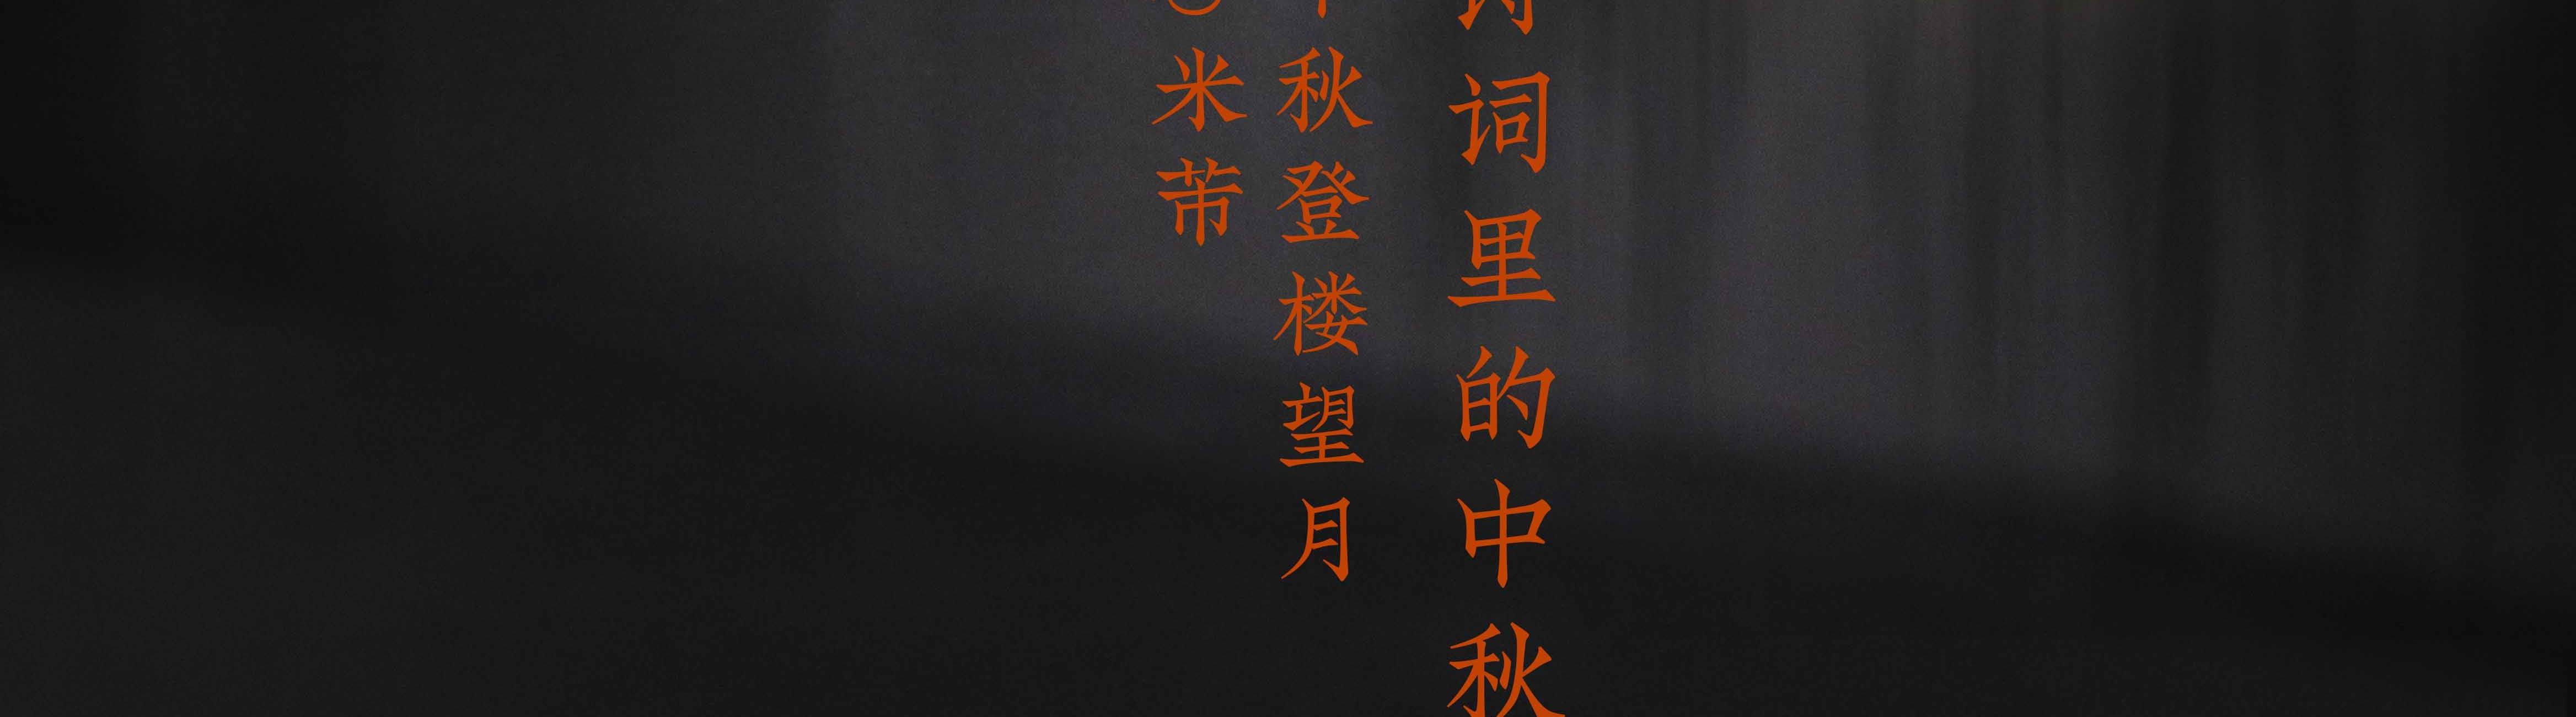 诗词里的中秋
中秋登楼望月
米芾